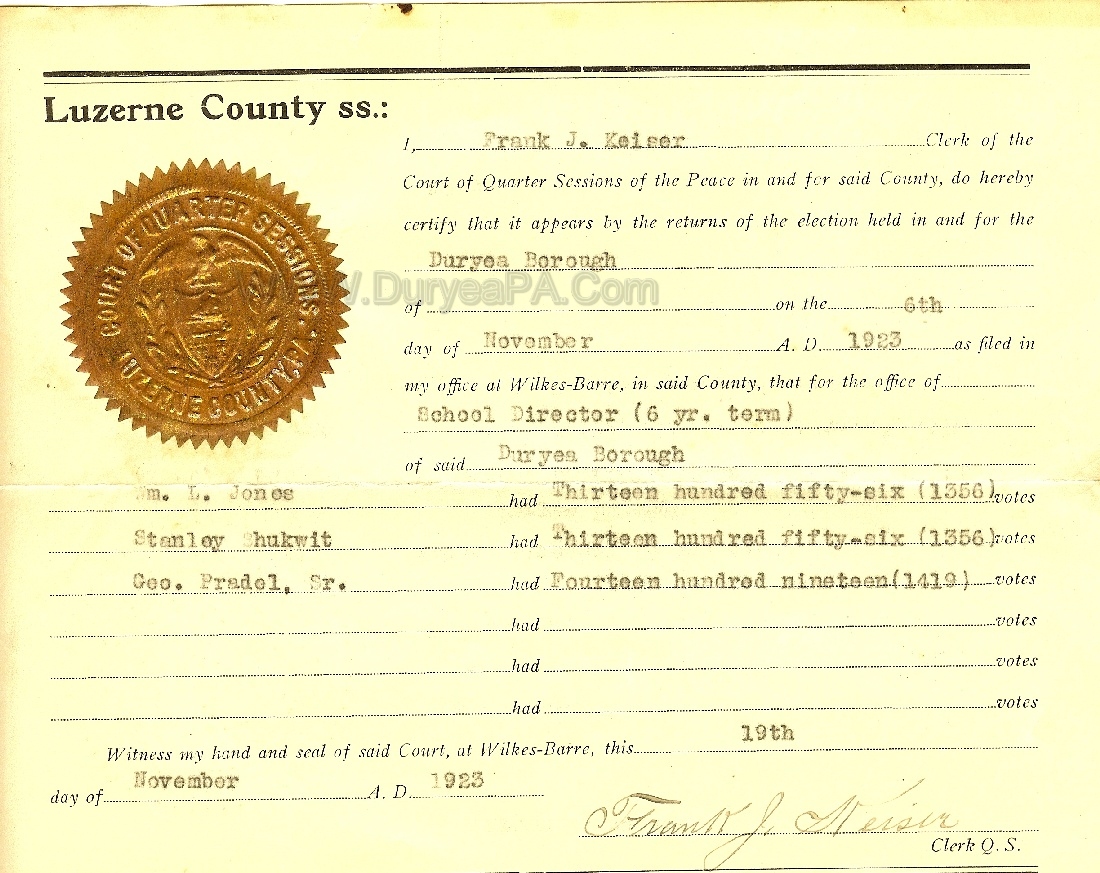 Luzerne County ss.:
I, Frank J. Keiser Clerk of the
Court of Quarter Sessions of the Peace in and for said County, do hereby
certify that it appears by the returns of the election held in and for the
Duryea Borough
WWW.DuryeaPA.Com
of on the 6th
day of November A. D. 1923 as filed in
my office at Wilkes-Barre, in said County, that for the office of
School Director (6 yr. term)
of said Duryea Borough
Wm. L. Jones had Thirteen hundred fifty-six (1356) votes
Stanley Shukwit had Thirteen hundred fifty-six (1356) votes
Geo. Pradel, Sr. had Fourteen hundred nineteen (1419) votes
had votes
had votes
had votes
Witness my hand and seal of said Court, at Wilkes-Barre, this 19th
day of November A. D. 1923
Frank J. Keiser
Clerk Q. S.
COURT OF QUARTER SESSIONS.
LUZERNE COUNTY, PA.